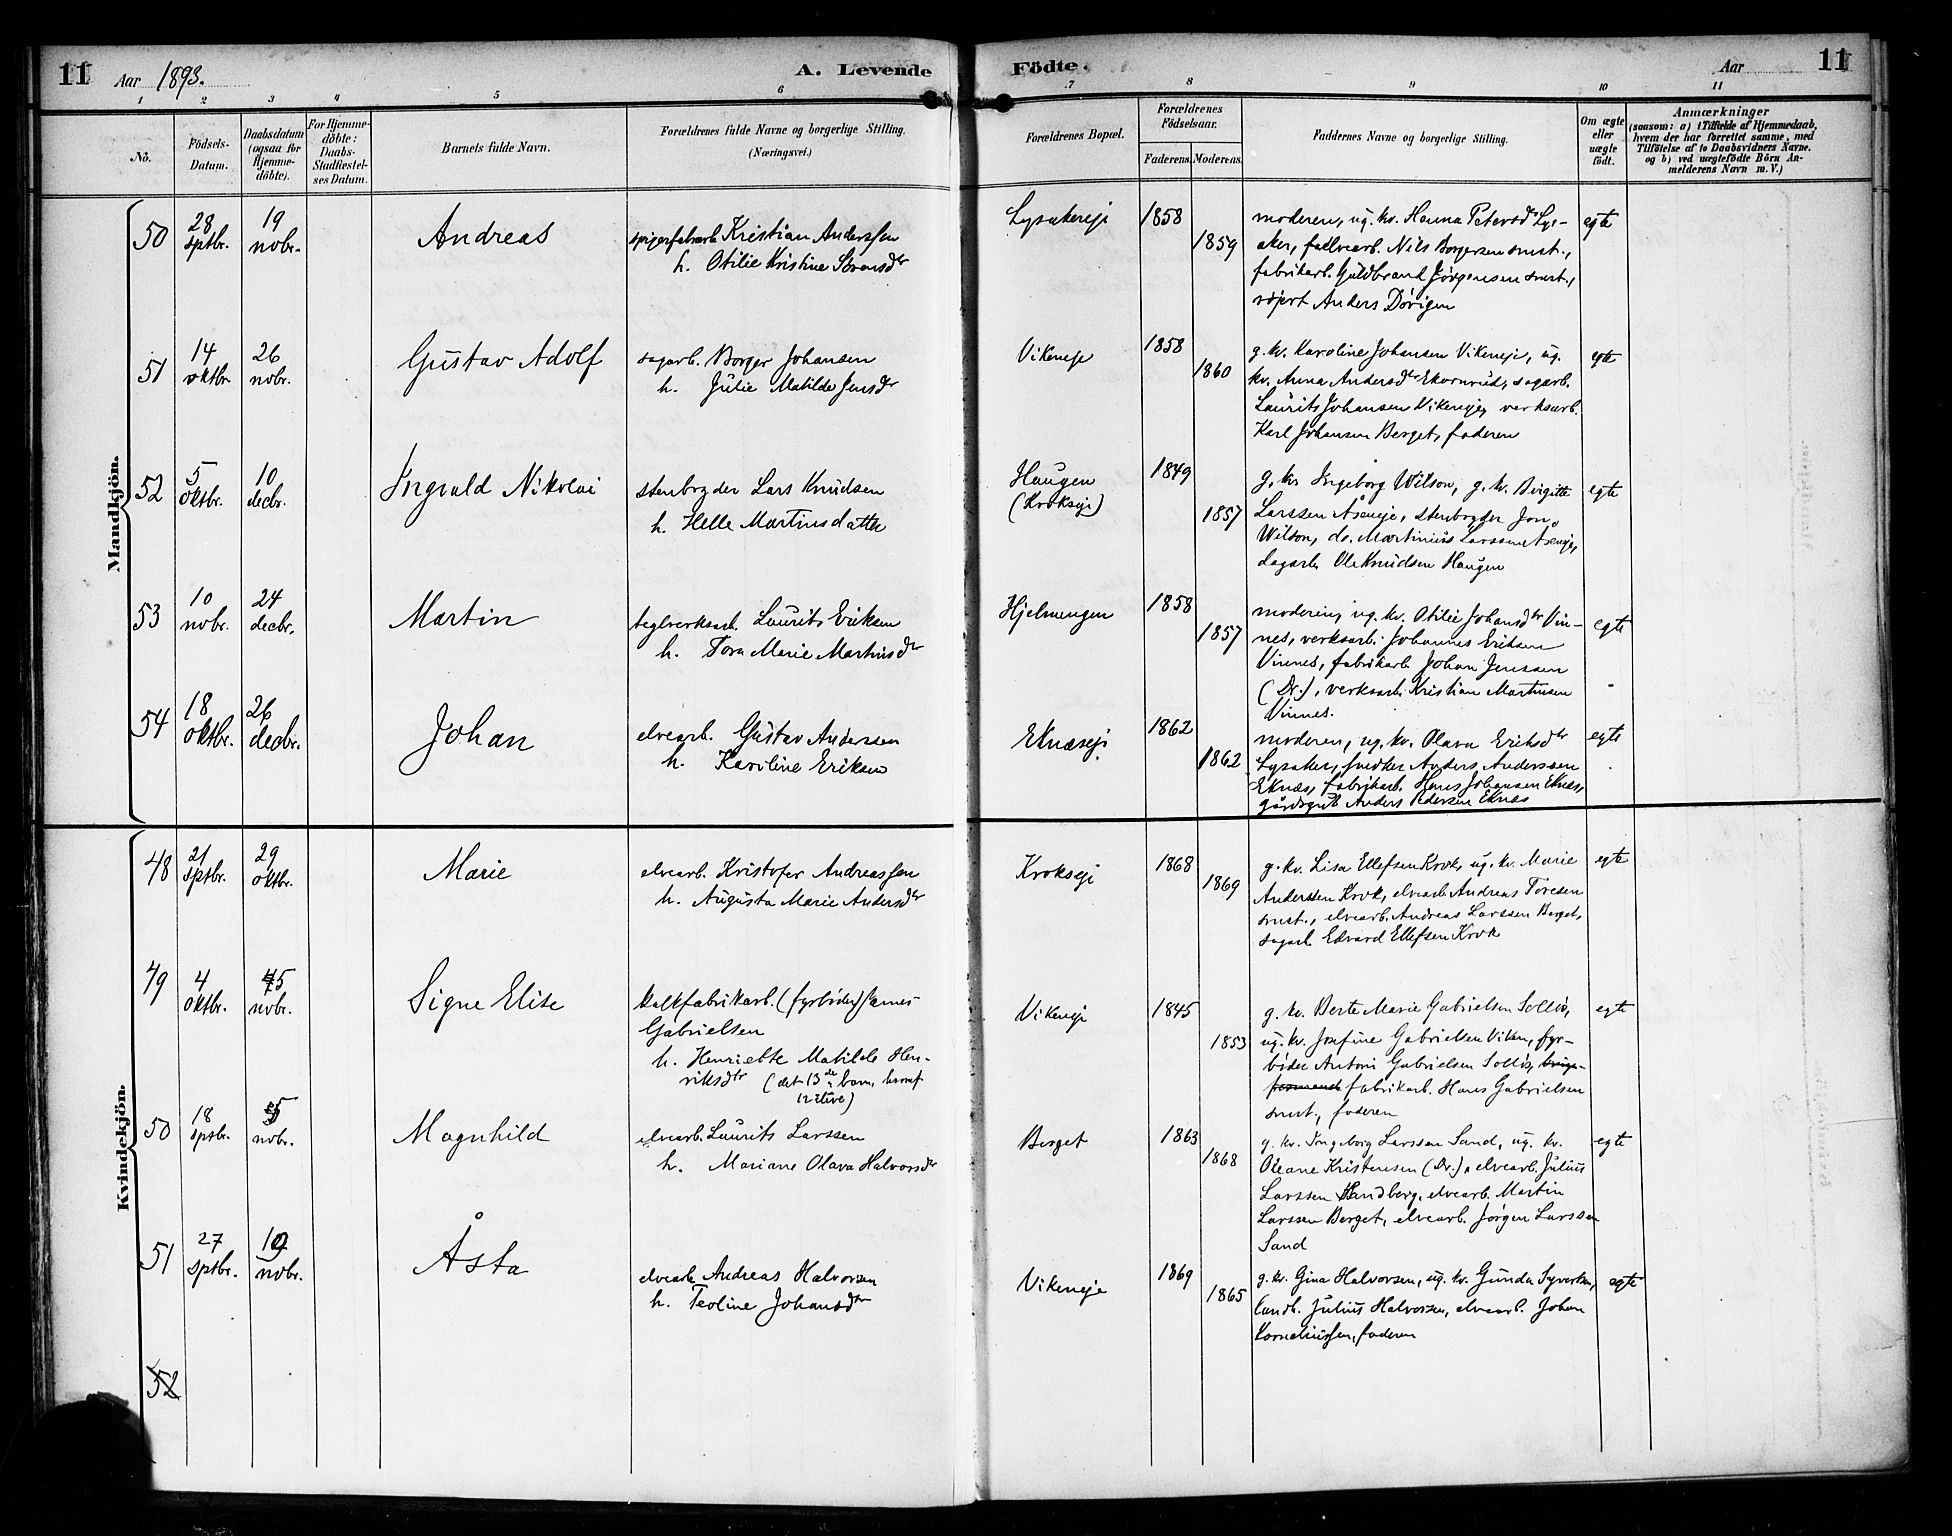 11 Aar 1893. A. Levende Födte. Aar 11
1 2 3 4 5 6 7 8 9 10 11
No. Födsels-Datum. Daabsdatum (ogsaa for Hjemme-döbte). For Hjemme-döbte: Daabs-Stadfæstel-ses Datum. Barnets fulde Navn. Forældrenes fulde Navne og borgerlige Stilling. (Næringsvei.) Forældrenes Bopæl. Forældrenes Födselsaar. Faderens. Moderens. Faddernes Navne og borgerlige Stilling. Om ægte eller uægte födt. Anmærkninger (saasom: a) i Tilfælde af Hjemmedaab, hvem der har forrettet samme, med Tilföielse af to Daabsvidners Navne. og b) ved uægtefödte Börn An-melderens Navn m. V.)
Mandkjön.
50 28 sptbr. 19 nobr. Andreas
spigerfabrarb. Kristian Anderssen
h. Otilie Kristine
Lysakereje 1858 1859
moderen, ug. kv. Hanna Petersdr Lys-
aker, Nils Borgersen smst.,
fabrikarb. Guldbrand Jørgensen smst.,
Anders
egte
51 14 oktbr. 26 nobr. Gustav Adolf
sagarb. Borger Johansen
h. Julie Matilde Jensdr
Vikeneje 1858 1860
g. kv. Karoline Johansen Vikeneje, ug.
kv. Anna Andersdtr Ekornrud, sagarb.
Laurits Johansen Vikeneje, verksarb.
Karl Johansen Berget, faderen
egte
52 5 oktbr. 10 decbr. Ingvald Nikolai
stenbryder Lars Knudsen
h. Helle Martinsdatter
Haugen
(Krokseje) 1849 1857
g. kv. Ingeborg Wilson, g. kv. Birgitte
Larssen Åseneje, stenbryder Jon
Wilson, do. Martinius Larssen Åseneje,
dagarb. Ole Knudsen Haugen
egte
53 10 nobr. 24 decbr. Martin
teglverksarb. Laurits Eriksen
h. Tora Marie Martinsdtr
Hjelmengen 1858 1857
moderen, ug. kv. Otilie Johansdtr Vin-
nes, verksarb. Johannes Eriksen
Vinnes, fabrikarb. Johan Jenssen
(Dr.), verksarb. Kristian Martinsen
Vinnes.
egte
54 18 oktbr. 26 decbr. Johan
elvearb. Gustav Andersen
h. Karoline Eriksen
Eknæseje 1862 1862
moderen, ug. kv. Olava Eriksdtr
Lysaker, snedker Anders Anderssen
Eknæs, fabrikarb. Hans Johansen Eknæs,
gårdsgut Anders Pedersen Eknæs
egte
Kvindekjön.
48 21 sptbr. 29 oktbr. Marie
elvearb. Kristofer Andreassen
h. Augusta Marie Andersdtr
Krokseje 1868 1869
g. kv. Lisa Ellefsen Krok, ug. kv. Marie
Anderssen Krok, elvearb. Andreas Toresen
smst., elvearb. Andreas Larssen Berget,
sagarb. Edvard Ellefsen Krok
egte
49 4 oktbr. 5 nobr. Signe Elise
kalkfabrikarb. (fyrbøder)
Gabrielsen
h. Henriette Matilde Hen-
riksdtr (det 13de barn, hvoraf
12 ilive)
Vikeneje 1845 1853
g. kv. Berte Marie Gabrielsen Solløs,
ug. kv. Josefine Gabrielsen Viken, fyr-
bøder Antoni Gabrielsen Solløs,
fabrikarb. Hans Gabrielsen
smst., faderen
egte
50 18 sptbr. 5 nobr. Magnhild
elvearb. Laurits Larssen
h. Mariane Olava Halvorsdtr
Berget 1863 1868
g. kv. Ingeborg Larssen Sand, ug. kv.
Oleane Kristensen (Dr.), elvearb. Julius
Larssen Sandberg, elvearb. Martin
Larssen Berget, elvearb. Jörgen Larssen
Sand
egte
51 27 sptbr. 19 nobr. Åsta
elvearb. Andreas Halvorsen
h. Teoline Johansdtr
Vikeneje 1869 1865
g. kv. Gina Halvorsen, ug. kv. Gunda Syvertsen,
landh. Julius Halvorsen, elvearb. Johan
Korneliussen, faderen
egte
52